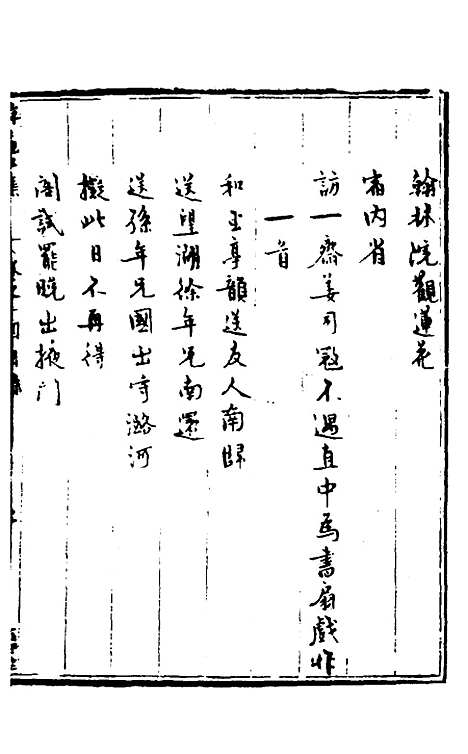 翰林院觀蓮花
宿內省
訪一齋姜司寇不遇直中爲書扇戲作
一首
和玉亭韻送友人南歸
送望湖徐年兄南還
送孫年兄國出守潞河
擬此日不再得
閣試罷晚出掖門